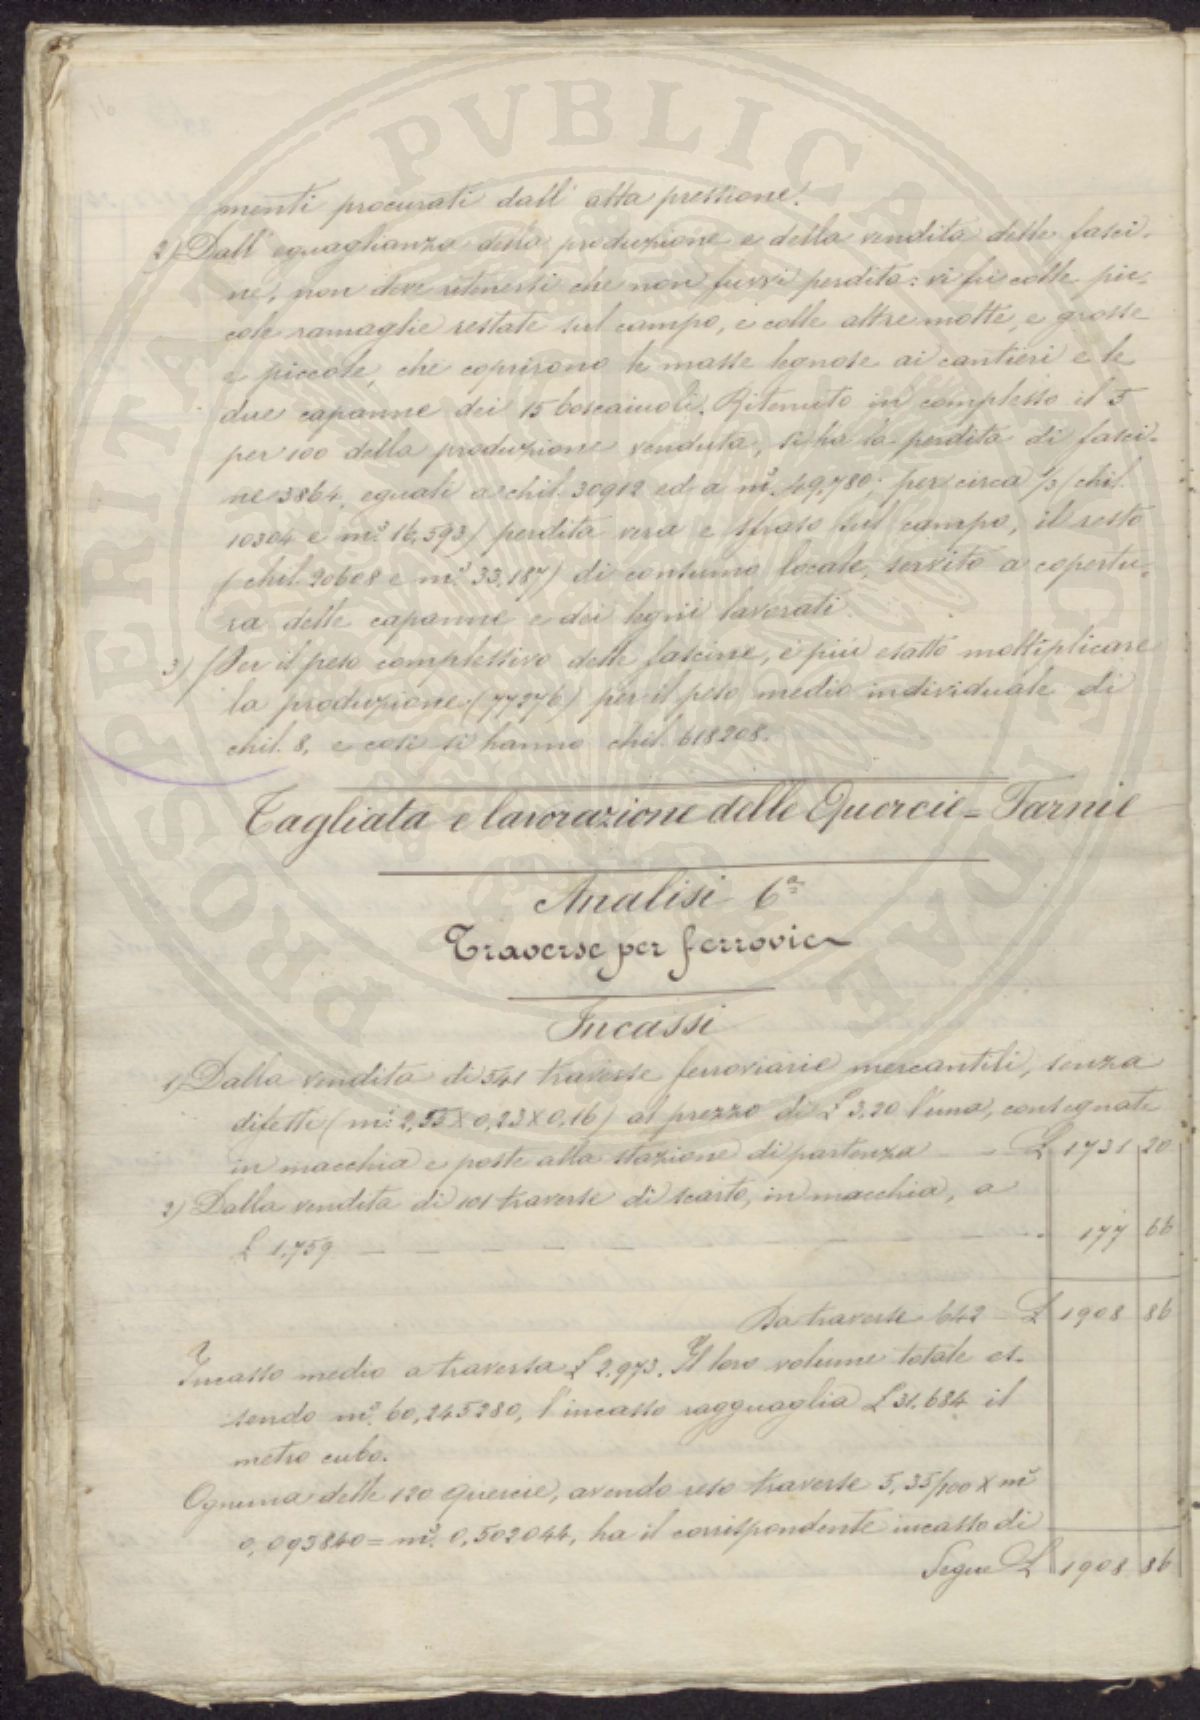 menti procurati dall'alta pressione.
2) Dall'eguaglianza della produzione e della vendita delle fasci-
ne, non deve ritenersi che non fuvvi perdita: vi fu colle pic-
cole ramaglie restate sul campo, e colle altre molte, e grosse
e piccole, che coprirono le masse legnose ai cantieri e le
due capanne dei 15 boscaiuoli. Ritenuto in complesso il 5
per 100 della produzione venduta, si ha la perdita di fasci-
ne 3864, eguali a chil. 30912 ed a m³. 49,780; per circa 1/3 (chil.
10304 e m³. 16,593) perdita vera e sfraso sul campo, il resto
(chil. 20608 e m³. 33,187) di consumo locale, servito a copertu-
ra delle capanne e dei legni lavorati.
3) Per il peso complessivo delle fascine, è più esatto moltiplicare
la produzione (77276) per il peso medio individuale di
chil. 8, e così si hanno chil. 618208.
Tagliata e lavorazione delle Quercie=Farnie
Analisi 6ª
Traverse per ferrovie
Incassi
1) Dalla vendita di 541 traverse ferroviarie mercantili, senza
difetti (m.i 2,55 X 0,23 X 0,16) al prezzo di £ 3,20 l'una, consegnate
in macchia e poste alla stazione di partenza — £ 1731 20
2) Dalla vendita di 101 traverse di scarto, in macchia, a
£ 1,759 — — — — — — — 177 66
Da traverse 642 — £ 1908 86
Incasso medio a traversa £ 2,973. Il loro volume totale es-
sendo m³. 60,245280, l'incasso ragguaglia £ 31,684 il
metro cubo.
Ognuna delle 120 quercie, avendo reso traverse 5,35/100 X m³
0,093840 = m³. 0,502044, ha il corrispondente incasso di
Segue £ 1908 86
PROSPERITATI PUBLICAE AUGENDAE